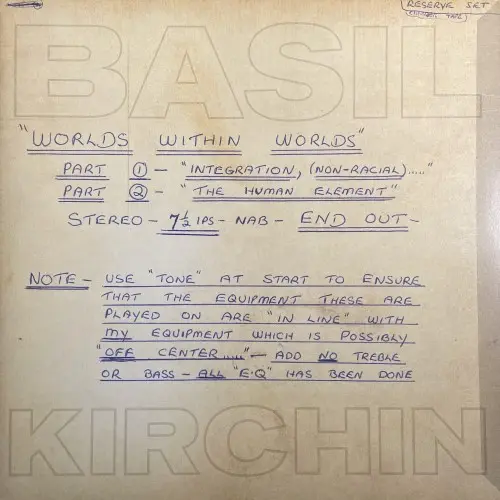 RESERVE SET
BASIL
"WORLDS WITHIN WORLDS"
PART ① - "INTEGRATION, (NON-RACIAL)....."
PART ② - "THE HUMAN ELEMENT"
STEREO - 7½ IPS - NAB - END OUT -
NOTE - USE "TONE" AT START TO ENSURE
THAT THE EQUIPMENT THESE ARE
PLAYED ON ARE "IN LINE" WITH
MY EQUIPMENT WHICH IS POSSIBLY
"OFF CENTER....." - ADD NO TREBLE
OR BASS - ALL "E'Q" HAS BEEN DONE
KIRCHIN